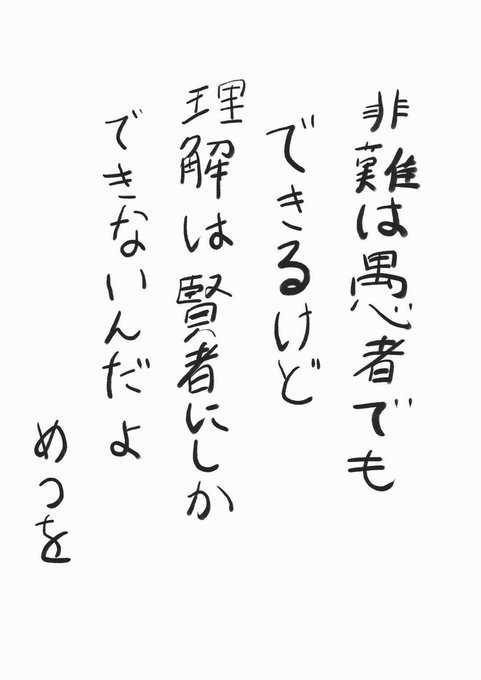 非難は愚者でも
できるけど
理解は賢者にしか
できないんだよ
めつを